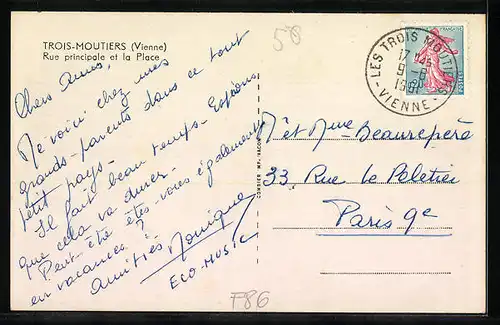 TROIS-MOUTIERS (Vienne)
Rue principale et la Place
50
LES TROIS MOUTIERS
17 H45
9-8
196
VIENNE
Chers amis,
Me voici chez mes
grands-parents dans ce tout
petit pays.
Il fait beau temps. Espérons
que cela va durer.
Peut être êtes-vous également
en vacances ?
Amitiés Monique
ECO-MUSIC
COMBIER IMP. MACON
M et Mme Beaurepère
33, Rue Le Peletier
Paris 9e
F86